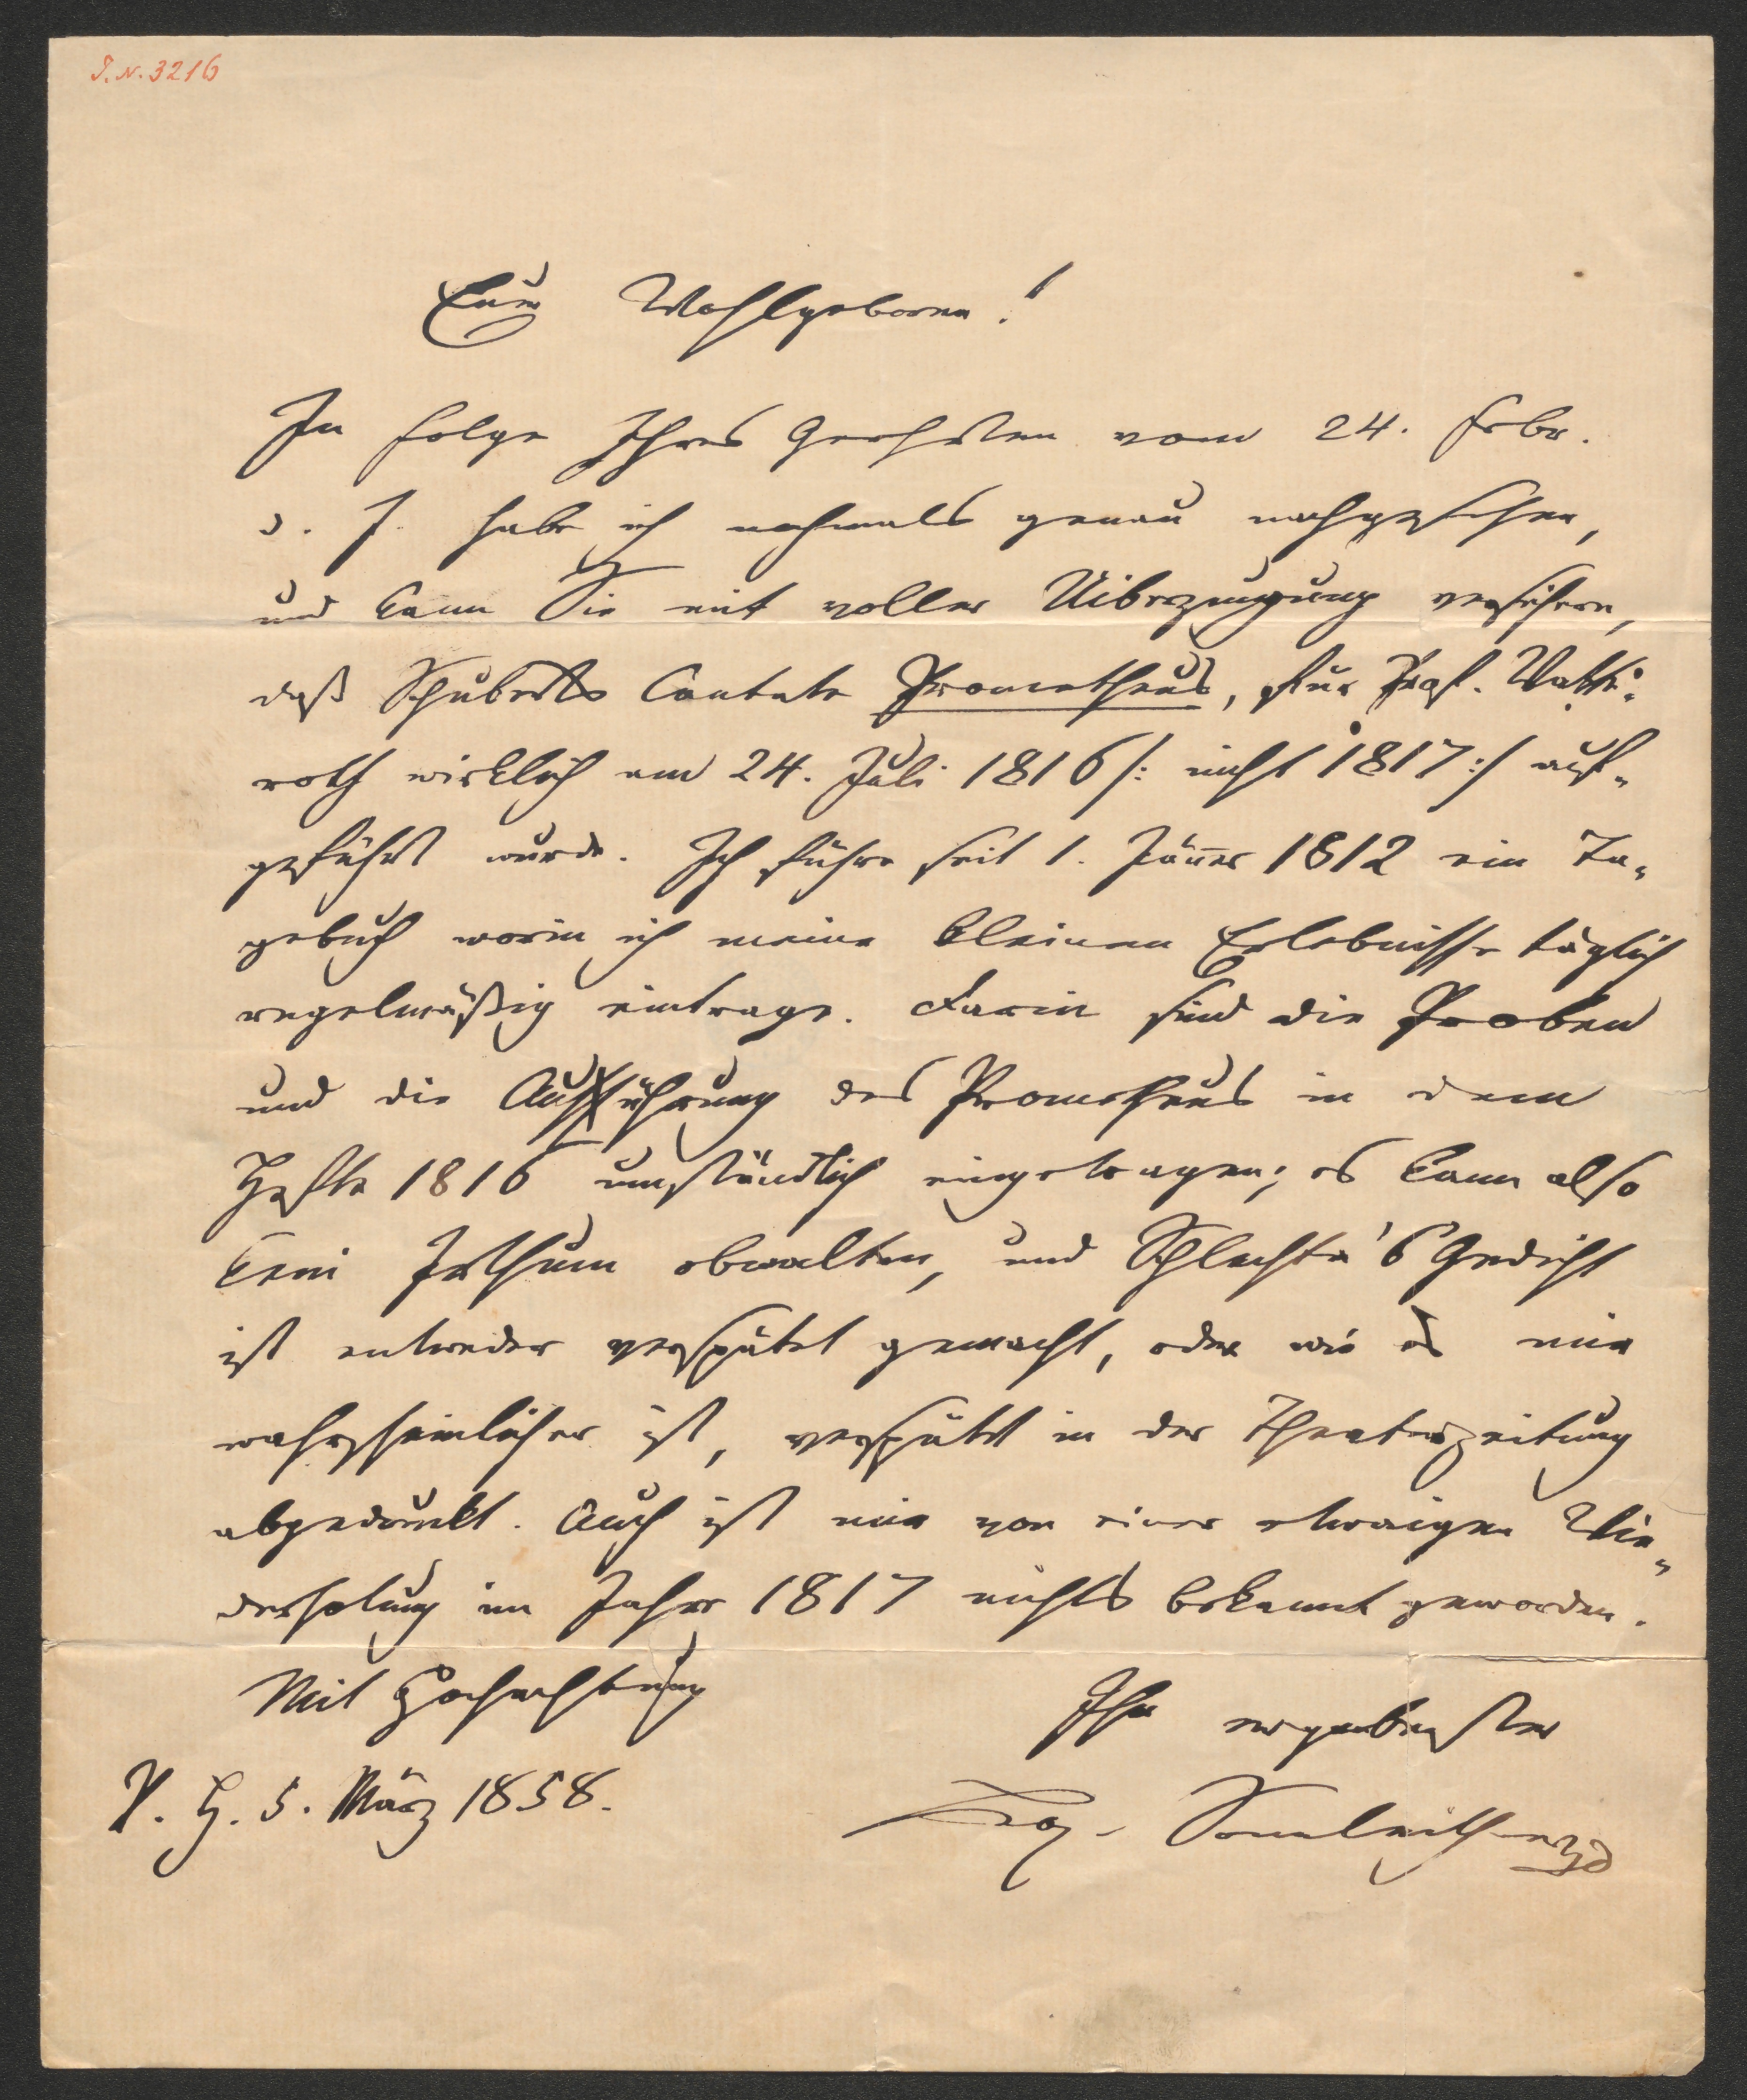 I. N. 3216
Euer Wohlgeboren!
In Folge Ihres Geehrten vom 24. Febr.
d. J. habe ich nochmals genau nachgesehen,
und kann Sie mit voller Uiberzeugung versichern,
daß Schuberts Cantate Prometheus, für Prof. Watte-
roth wirklich am 24. Juli 1816 /: nicht 1817 :/ auf-
geführt wurde. Ich führe seit 1. Jänner 1812 ein Ta-
gebuch worin ich meine kleinen Erlebnisse täglich
regelmäßig eintrage. Darin sind die Proben
und die Aufführung des Prometheus in dem
Hefte 1816 umständlich eingetragen; es kann also
kein Irthum obwalten, und Schlechta's Gedicht
ist entweder verspätet gemacht, oder wie es mir
wahrscheinlicher ist, verspätet in der Theaterzeitung
abgedruckt. Auch ist mir von einer etwaigen Wie-
derholung im Jahre 1817 nichts bekannt geworden.
Mit Hochachtung
Ihr ergebenster
V. H. 5. März 1858.
Sonnleithner